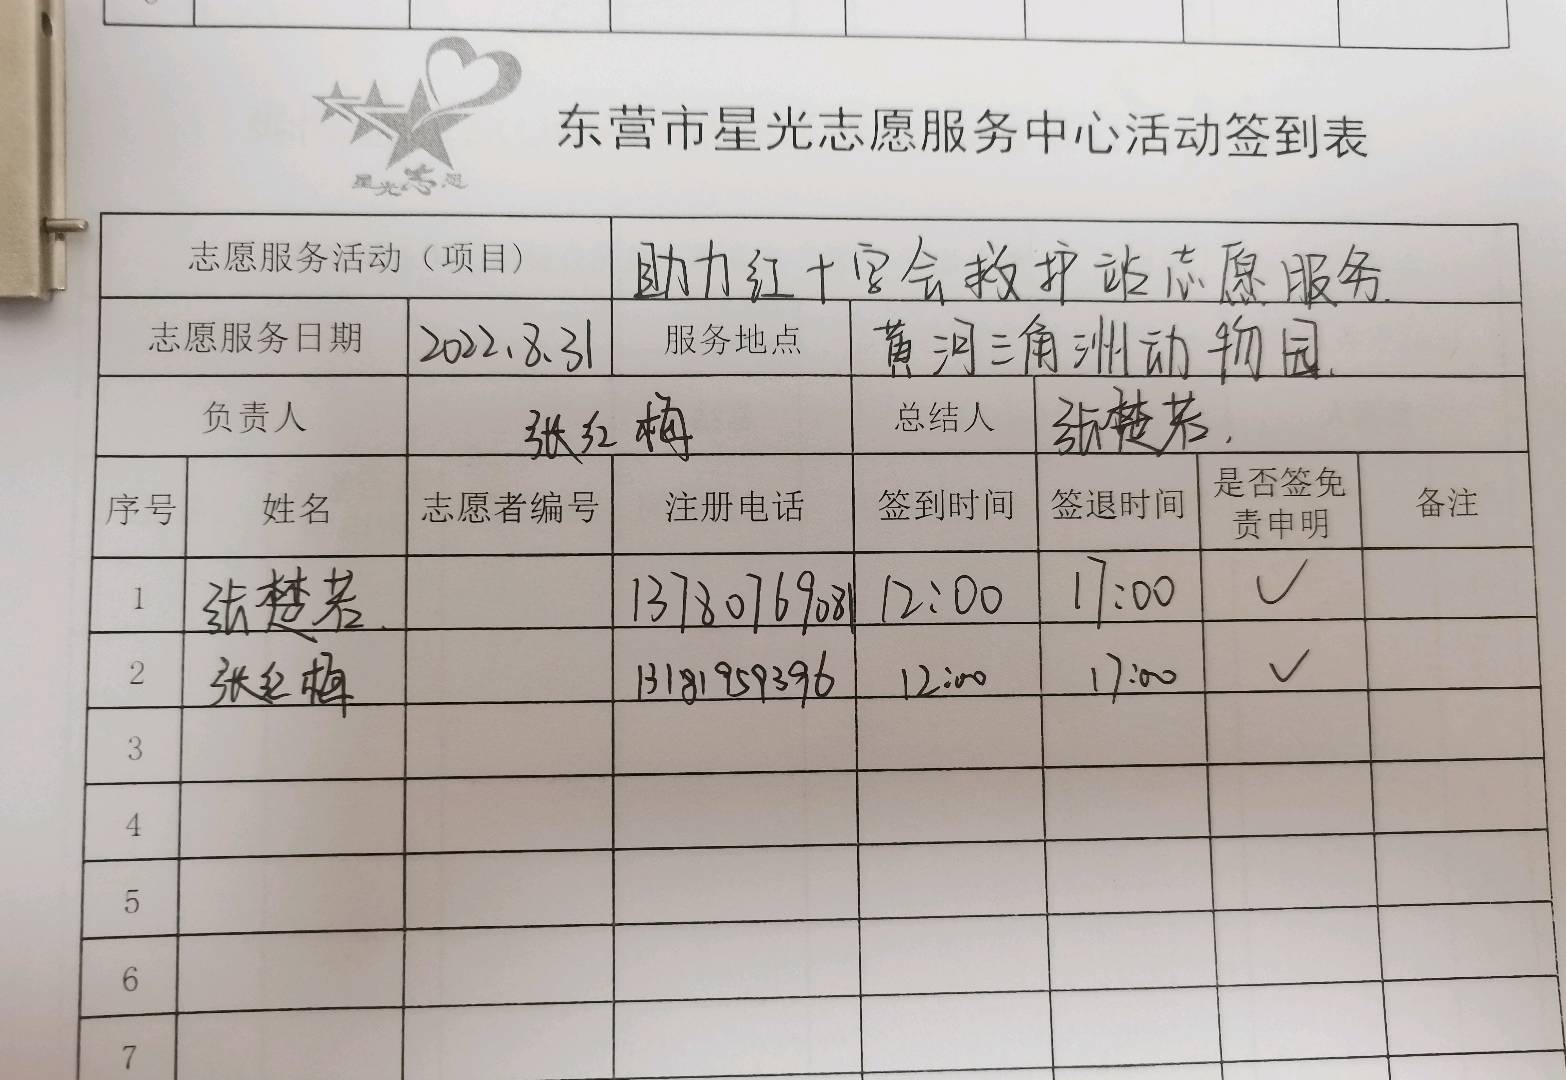 星光志愿
东营市星光志愿服务中心活动签到表
志愿服务活动（项目） 助力红十字会救护站志愿服务.
志愿服务日期 2022.8.31 服务地点 黄河三角洲动物园.
负责人 张红梅 总结人 张楚若.
序号 姓名 志愿者编号 注册电话 签到时间 签退时间 是否签免责申明 备注
1 张楚若. 13780769081 12:00 17:00 ✓
2 张红梅 13181959396 12:00 17:00 ✓
3
4
5
6
7